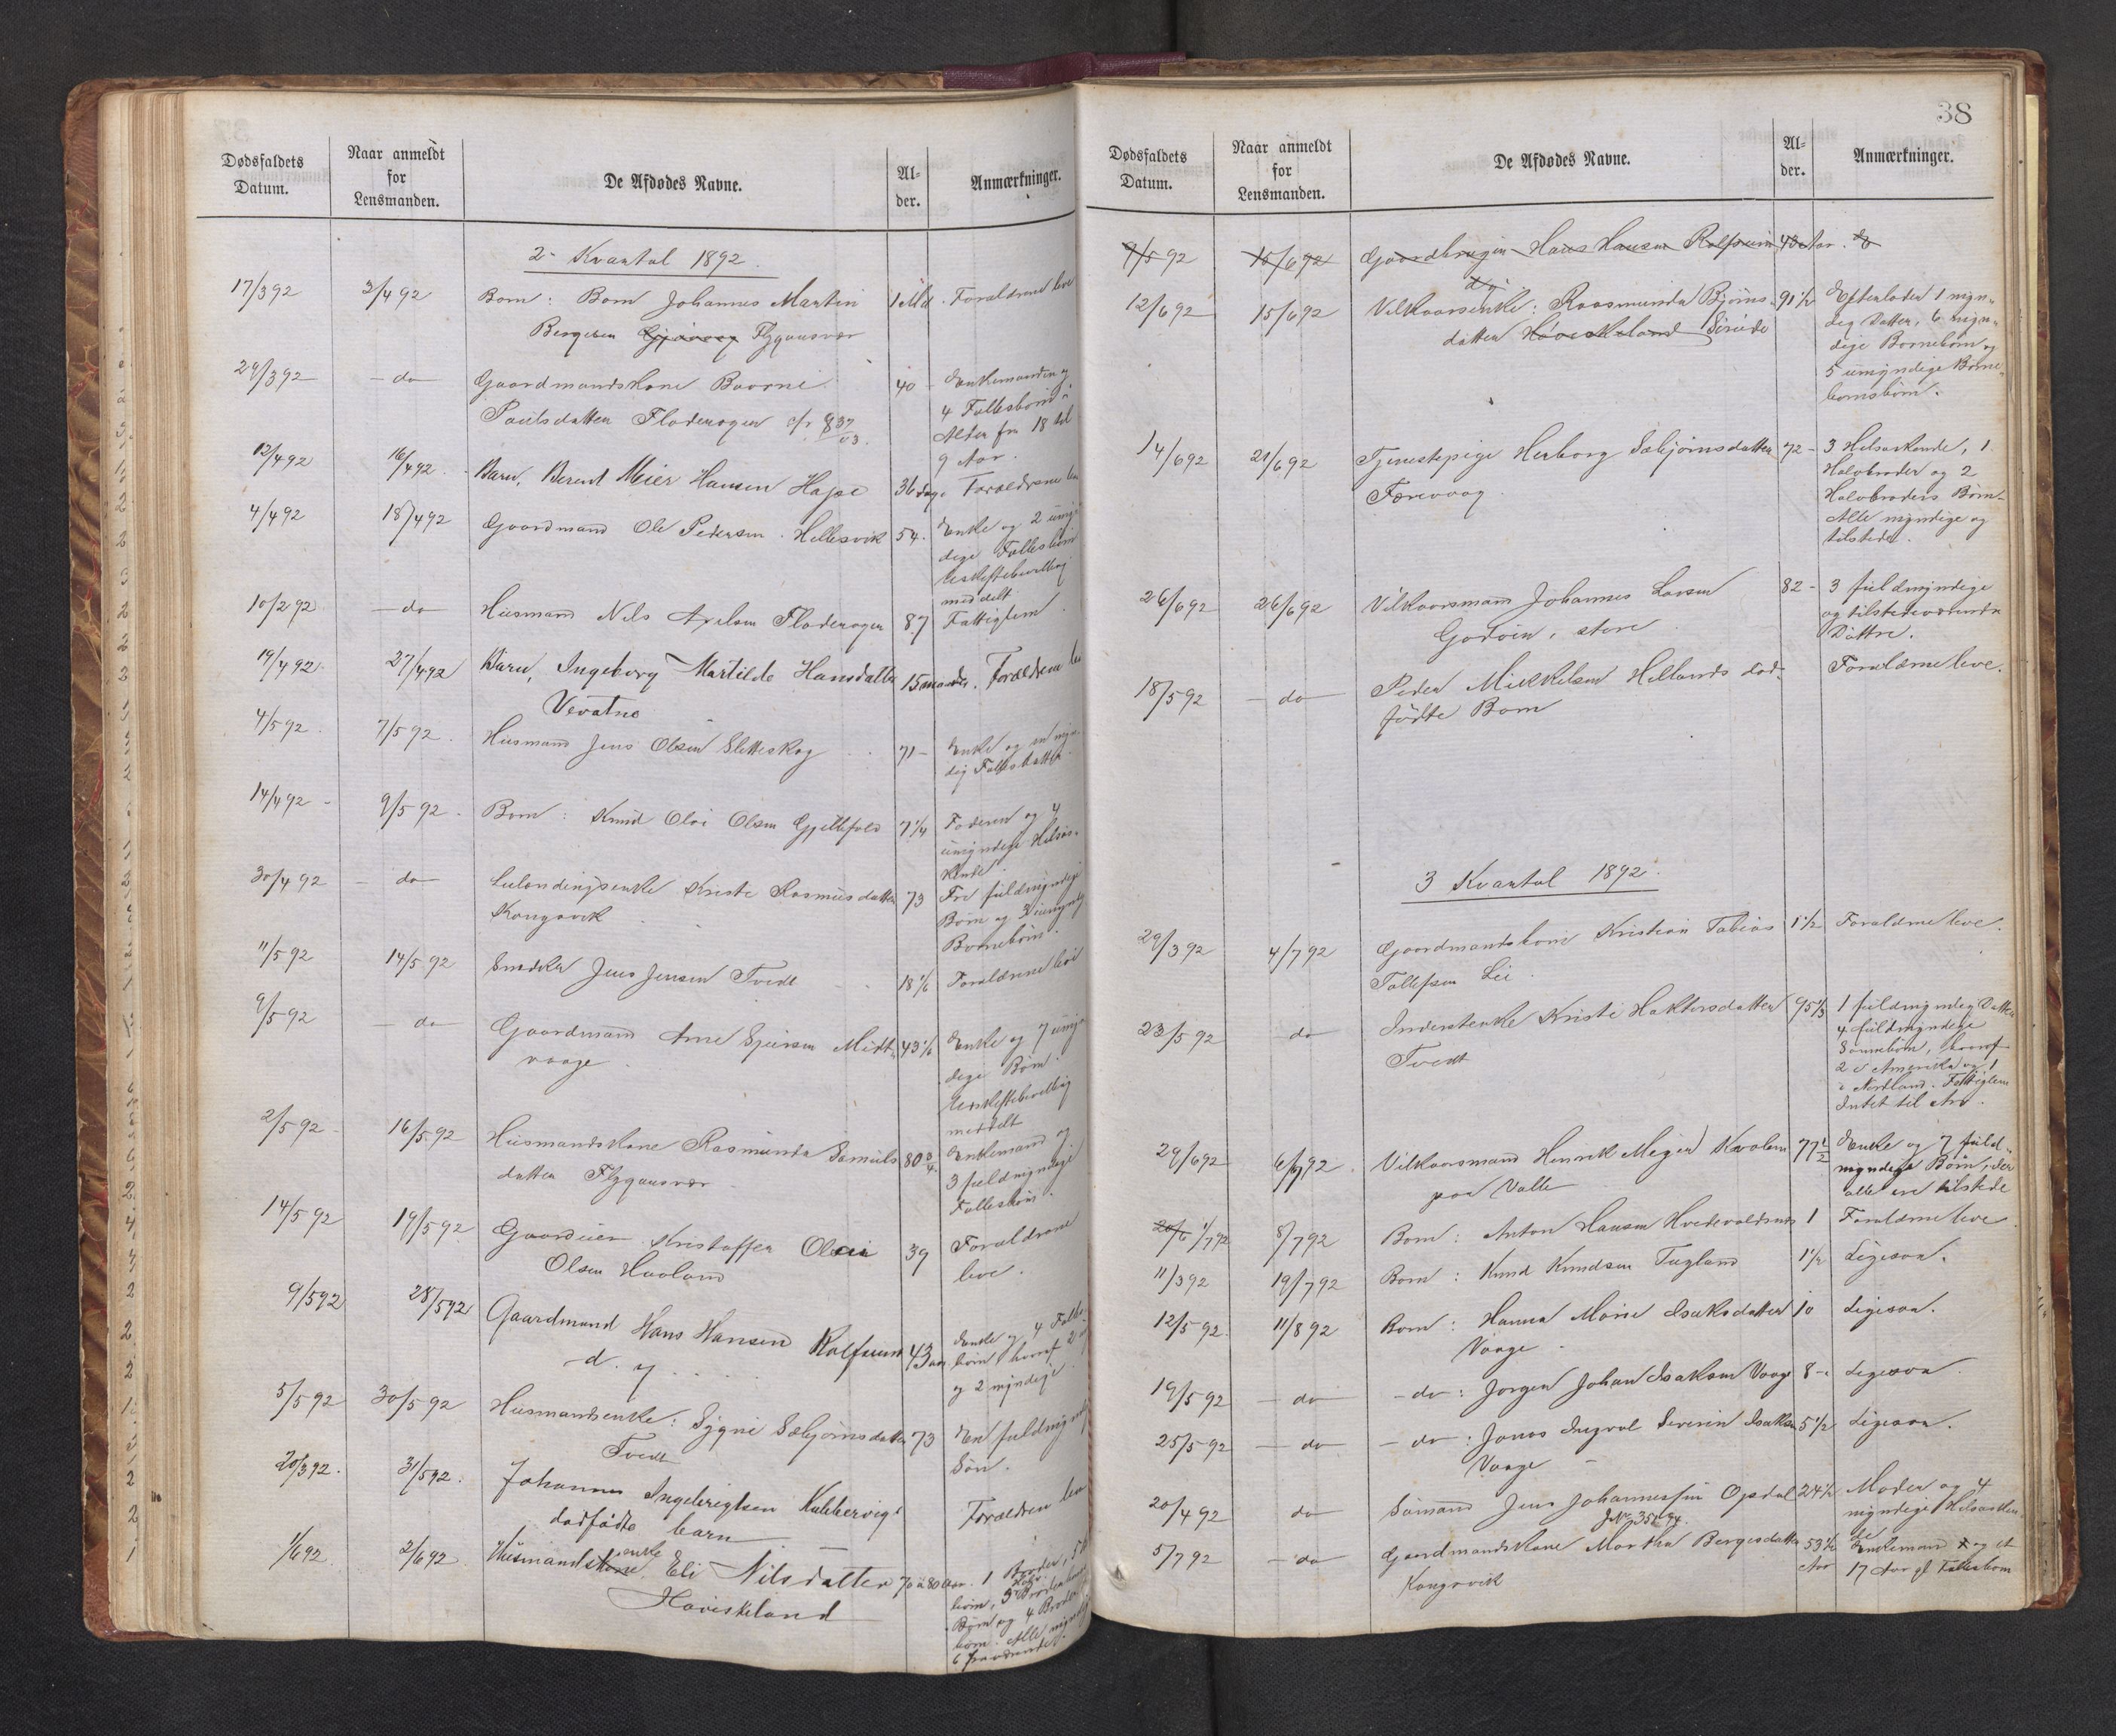 Dødsfaldets Datum.
Naar anmeldt for Lensmanden.
De Afdødes Navne.
Al-der.
Anmærkninger.
2- Kvartal 1892.
17/3 92 2/4 92 Barn: Barn Johannes Martin 1 Md. Forældrene leve
Bergesen Flygansvær
29/3 92 - do - Gaardmandskone 40 - Enkemanden og
Paulsdatter Floderogen 4 Fællesbørn
Alder fra 18 til
9 Aar.
12/4 92 16/4 92 Barn, Berent Meier Hansen Hapse 36 dage Forældrene
4/4 92 18/4 92 Gaardmand Ole Pedersen Hellesvik 54. Enke og 2 umyn
dige Fællesbørn
Uskiftebevilling
meddelt
10/2 92 - do Husmand Nils Axelsen Floderogen 87 Fattiglem
19/4 92 27/4 92 Barn, Ingeborg Martilde Hansdatter 15 maander. Forældrene
Vevatne
4/5 92 7/5 92 Husmand Jens Olsen Sletteskog 71 - Enke og en myn
dig Fællesdatter
14/4 92 - 9/5 92 - Barn: Knud Olai Olsen Gjellefald 7 1/4 Faderen og 4
umyndige Helsøs-
kende.
30/4 92 - do - Kristi Rasmusdatter 73 Tre fuldmyndige
Kongsvik Børn og 3 umyndig
Børnebørn.
11/5 92 14/5 92 Snedker Jens Jensen Tvedt 18 1/6 Forældrene leve
9/5 92 - do Gaardmand Arne Sjursen Midt- 43 1/6 Enke og 7 umyn
vaage dige Børn
Uskiftebevilling
meddelt
2/5 92 - 16/5 92 Husmandskone Rasmunda Samuels 80 3/4 Enkemand og
datter Flygansvær 3 fuldmyndige
Fællesbørn.
14/5 92 19/5 92 Gaardeier Kristoffer Olai 39 Forældrene
Olsen Haaland leve.
9/5 92 28/5 92 Gaardmand Hans Hansen Rolfsund 43 aar Enke og 4 Fælles
d. y. børn hvoraf 2
og 2 myndige
5/5 92 30/5 92 Husmandsenke: Sygni Sæbjørnsdatter 73 En fuldmyndig
Tvedt Søn.
20/3 92. 31/5 92. Johannes Ingebrigtsen Kubbervigs Forældrene
dødfødte barn
1/6 92. 2/6 92. Husmandskone enke Eli Nilsdatter 70 a 80 Aar. 1 Broder,
Høviskeland børn,
Børn og 4
børn. Alle
38
Dødsfaldets Datum.
Naar anmeldt for Lensmanden.
De Afdødes Navne.
Al-der.
Anmærkninger.
9/5 92 15/6 92 Gaardbruger Hans Hansen Rolfsund 43 Aar.
d y
12/6 92 15/6 92 Vilkaarsenke: Rasmunda Bjørns- 91 1/2 Efterlader 1 myn-
datter Høviskeland dig Datter, 6 myn-
dige Børnebørn og
5 umyndige Børne-
børnsbørn.
14/6 92 21/6 92 Tjenestepige Herborg Sæbjørnsdatter 72 - 3 Helsøskende, 1
Færøvaag Halvbroder og 2
Halvbroders Børn -
Alle myndige og
tilstede.
26/6 92 26/6 92 Vilkaarsmann Johannes Larsen 82 - 3 fuldmyndige
Godøen, store og tilstedeværende
Døttre.
18/5 92 - do - Peder Mikkelsen Hellands død- Forældrene leve.
fødte Barn
3 Kvartal 1892.
29/3 92 4/7 92 Kristian Tobias 1 1/2 Forældrene leve.
Tollefsen Lie
23/5 92 do Inderstenke Kristi Haktorsdatter 95 1/3 1 fuldmyndig Datter
Tvedt 4 fuldmyndige
Sønnebørn, hvoraf
2 i Amerika og 1
i Nordland. Fattiglem
Intet til Arv.
29/6 92 6/7 92. Vilkaarsmand Henrik Meyer Kvalem 77 1/2 Enke og 7 fuld-
paa Valle myndige Børn, der
alle ere tilstede
1/7 92 8/7 92 Barn: Anton Hansen Hvedevoldsnes 1 Forældrene leve
11/3 92 19/7 92 Barn: Knud Knudsen Tugland 1 1/2 Ligesaa.
12/5 92. 11/8 92 Barn: Hanna Marie Isaksdatter 10 Ligesaa.
Vaage -
19/5 92 - do - - do: Jørgen Johan Isaksen Vaage 8 - Ligesaa
25/5 92 - do - - do: Jonas Ingval Severin Isaksen 5 1/2 Ligesaa.
Vaage -
20/4 92 do Sømand Jens Johannessen Opdal 24 1/2 Moder og 4
myndige Helsøsken
de
5/7 92 - do Gaardmandskone Martha Bergesdatter 53 1/2 Enkemand og et
Kongsvik Aar 17 Aar gl Fællesbarn